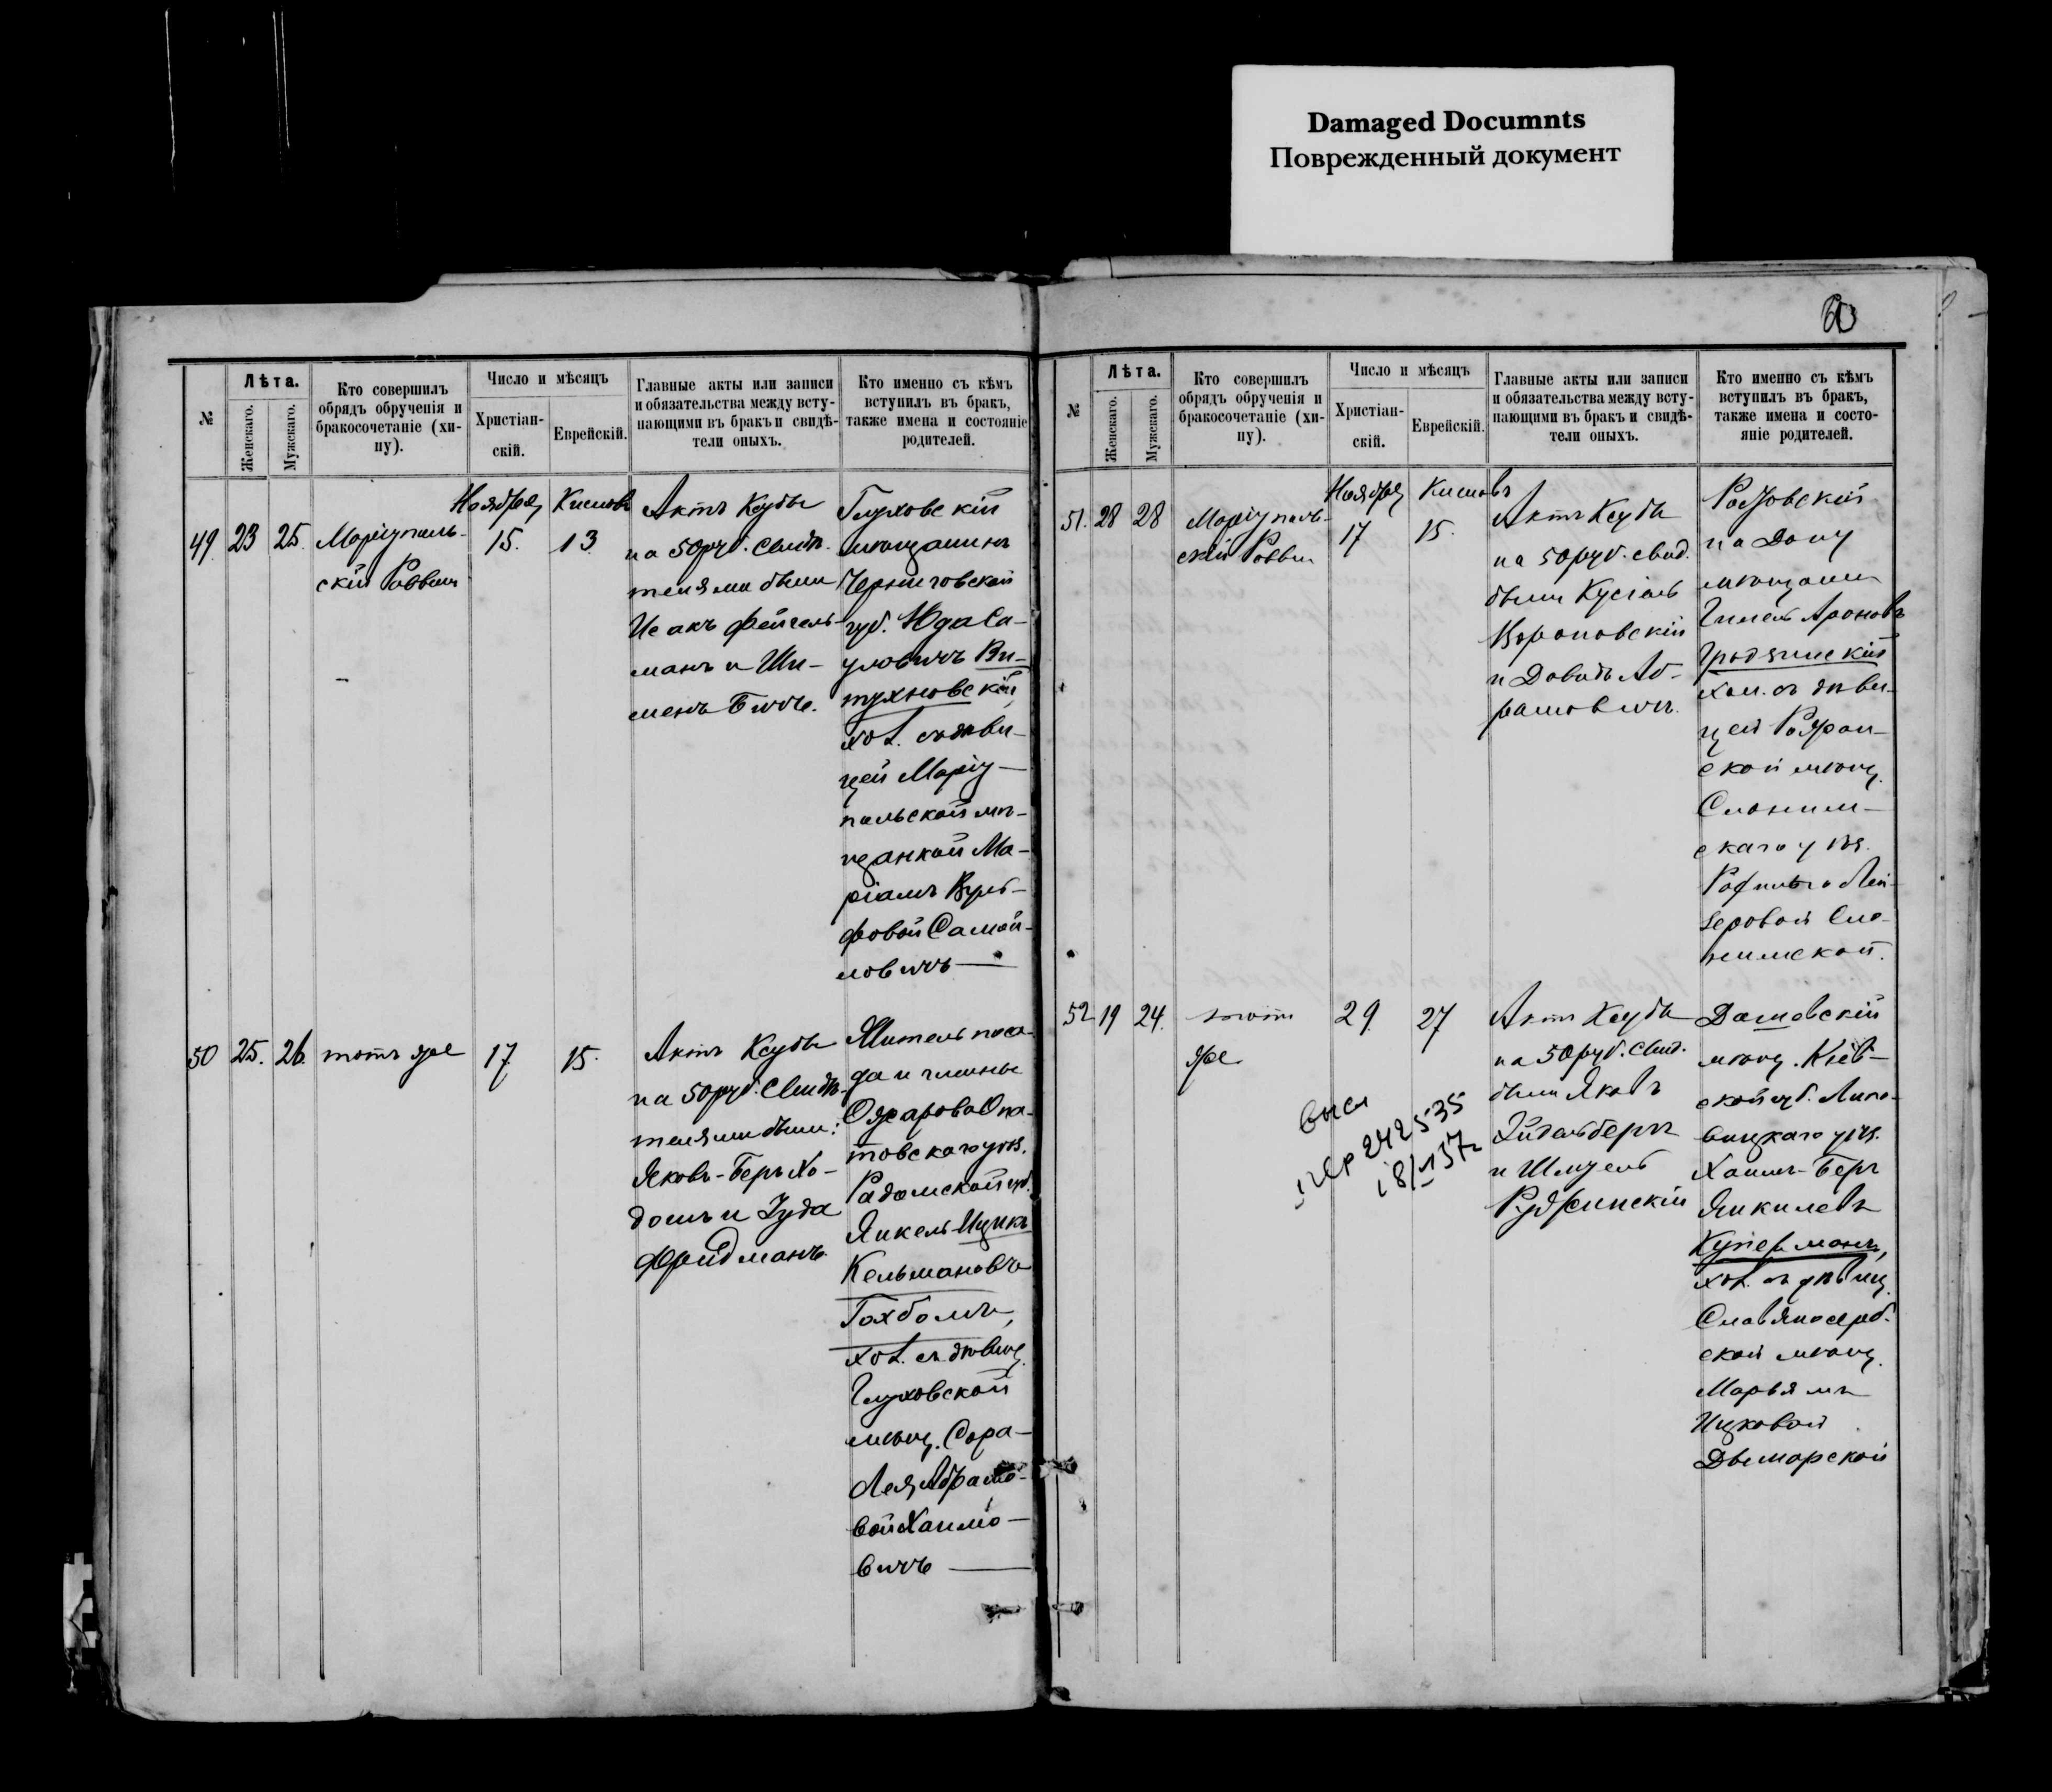 Damaged Documnts
Поврежденный документ
№
Лѣта.
Женскаго.
Мужскаго.
Кто совершилъ
обрядъ обрученія и
бракосочетаніе (хи-
пу).
Число и мѣсяцъ
Христіан-
скій.
Еврейскій.
Главные акты или записи
и обязательства между всту-
пающими въ бракъ и свидѣ-
тели оныхъ.
Кто именно съ кѣмъ
вступилъ въ бракъ,
также имена и состояніе
родителей.
49
23
25.
Маріуполь-
скій Раввин
Ноября
15.
Кислевъ
13
Актъ Ксубы
на 50 руб. Свидѣ-
телями были
Исакъ Фейгель-
манъ и Ши-
менъ Бичъ.
Глуховскій
мѣщанинъ
Черниговской
губ. Юда Са-
уловичъ Ви-
тухновскій,
хол. съ дѣви-
цей Маріу-
польской мѣ-
щанкой Ма-
ріамъ Вуль-
фовой Самой-
ловичъ
50
25.
26.
тотъ же
17
15.
Актъ Ксубы
на 50 руб. Свидѣ-
телями были:
Яковъ-Беръ Хо-
дошъ и Іуда
Фридманъ.
Житель поса-
да и гмины
Ожарова Опа-
товскаго уѣз.
Радомской губ.
Янкель-Ицикъ
Кельмановъ
Гохбомъ,
хол. съ дѣвиц.
Глуховской
мѣщ. Сора-
Лея Абрамо-
вой Хаимо-
вичъ
№
Лѣта.
Женскаго.
Мужскаго.
Кто совершилъ
обрядъ обрученія и
бракосочетаніе (хи-
пу).
Число и мѣсяцъ
Христіан-
скій.
Еврейскій.
Главные акты или записи
и обязательства между всту-
пающими въ бракъ и свидѣ-
тели оныхъ.
Кто именно съ кѣмъ
вступилъ въ бракъ,
также имена и состо-
яніе родителей.
51.
28
28
Маріуполь-
скій Раввин
Ноября
17
Кислевъ
15.
Актъ Ксубы
на 50 руб. свид.
были Кусіель
Вороновскій
и Давидъ Аб-
рамовичъ.
на Дону
мѣщанин
Ароновъ
хол. съ дѣви-
цей
ской мѣщ.
Слоним-
скаго уѣз.
Лей-
зеровой Сло-
нимской.
52
19
24.
тотъ
же
29
27
Актъ Ксубы
на 50 руб. Свид.
были Яковъ
Эйдельберъ
и Шмуель
Руджинскій
Дашевскій
мѣщ. Кіев-
ской губ. Липо-
вицкаго уѣз.
Хаимъ-Беръ
Янкилевъ
Куперманъ,
хол. съ дѣвиц.
Славяносерб-
ской мѣщ.
Марьямъ
Ицковой
Дымарской
242535